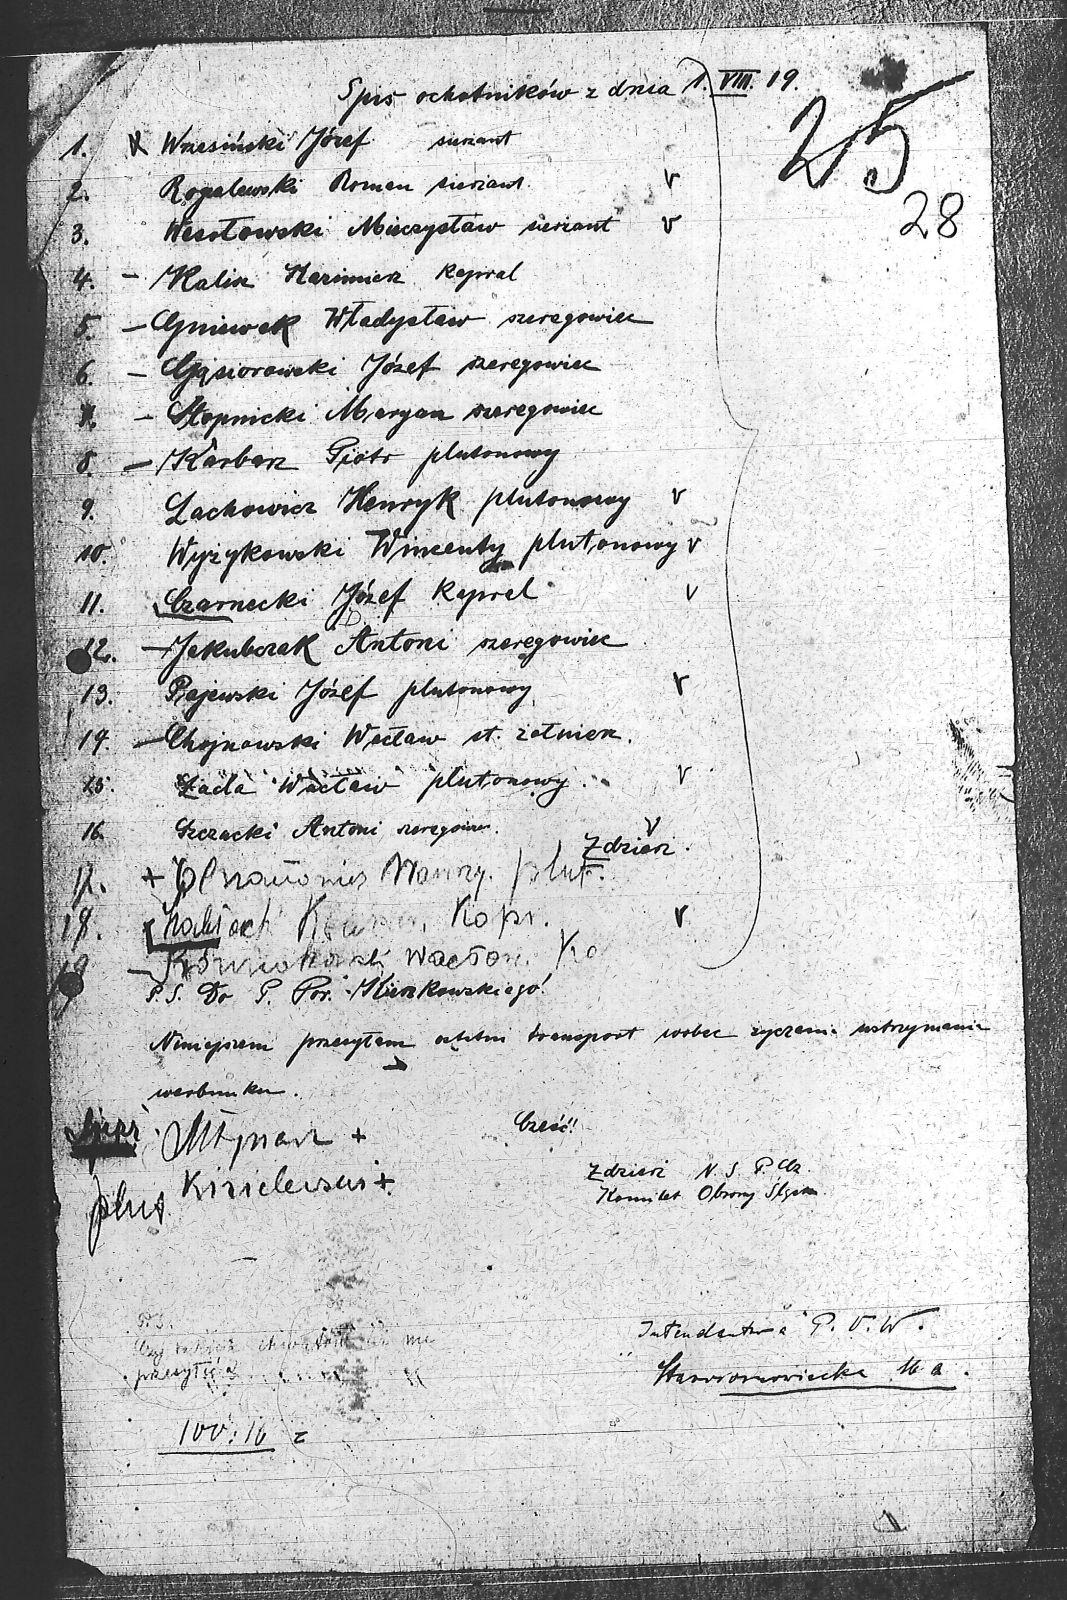 Spis ochotników z dnia 1. VIII. 19.
25
28
1. Wrzesiński Józef sierżant
2. Rogalewski Roman sierżant v
3. Wesołowski Mieczysław sierżant v
4. - Kalisz Kazimierz kapral
5. - Gniewek Władysław szeregowiec
6. - Gąsiorowski Józef szeregowiec
7. - Stopnicki Maryan szeregowiec
8. - Karbarz Piotr plutonowy
9. Lachowicz Henryk plutonowy v
10. Wyżykowski Wincenty plutonowy v
11. Czarnecki Józef kapral v
12. - Jakubczak Antoni szeregowiec
13. Pajewski Józef plutonowy v
14. - Chojnowski Wacław st. żołnierz.
15. Łada Wacław plutonowy. v
16. Szczacki Antoni szeregowiec. v
Zdzierz.
17. + Wawrz. plut.
18. Kapr. v
19 - Wacław Ka
P.S. Do P. Por. Kierzkowskiego!
Niniejszem przesyłam ostatni transport wobec życzenia wstrzymania
werbunku.
Cześć!
Młynarz +
Zdzierz N. S. P. Cz.
plut
Komitet Obrony Śląska
P.S.
przesyłać
Intendentura P. O. W.
16 a.
100:16 =